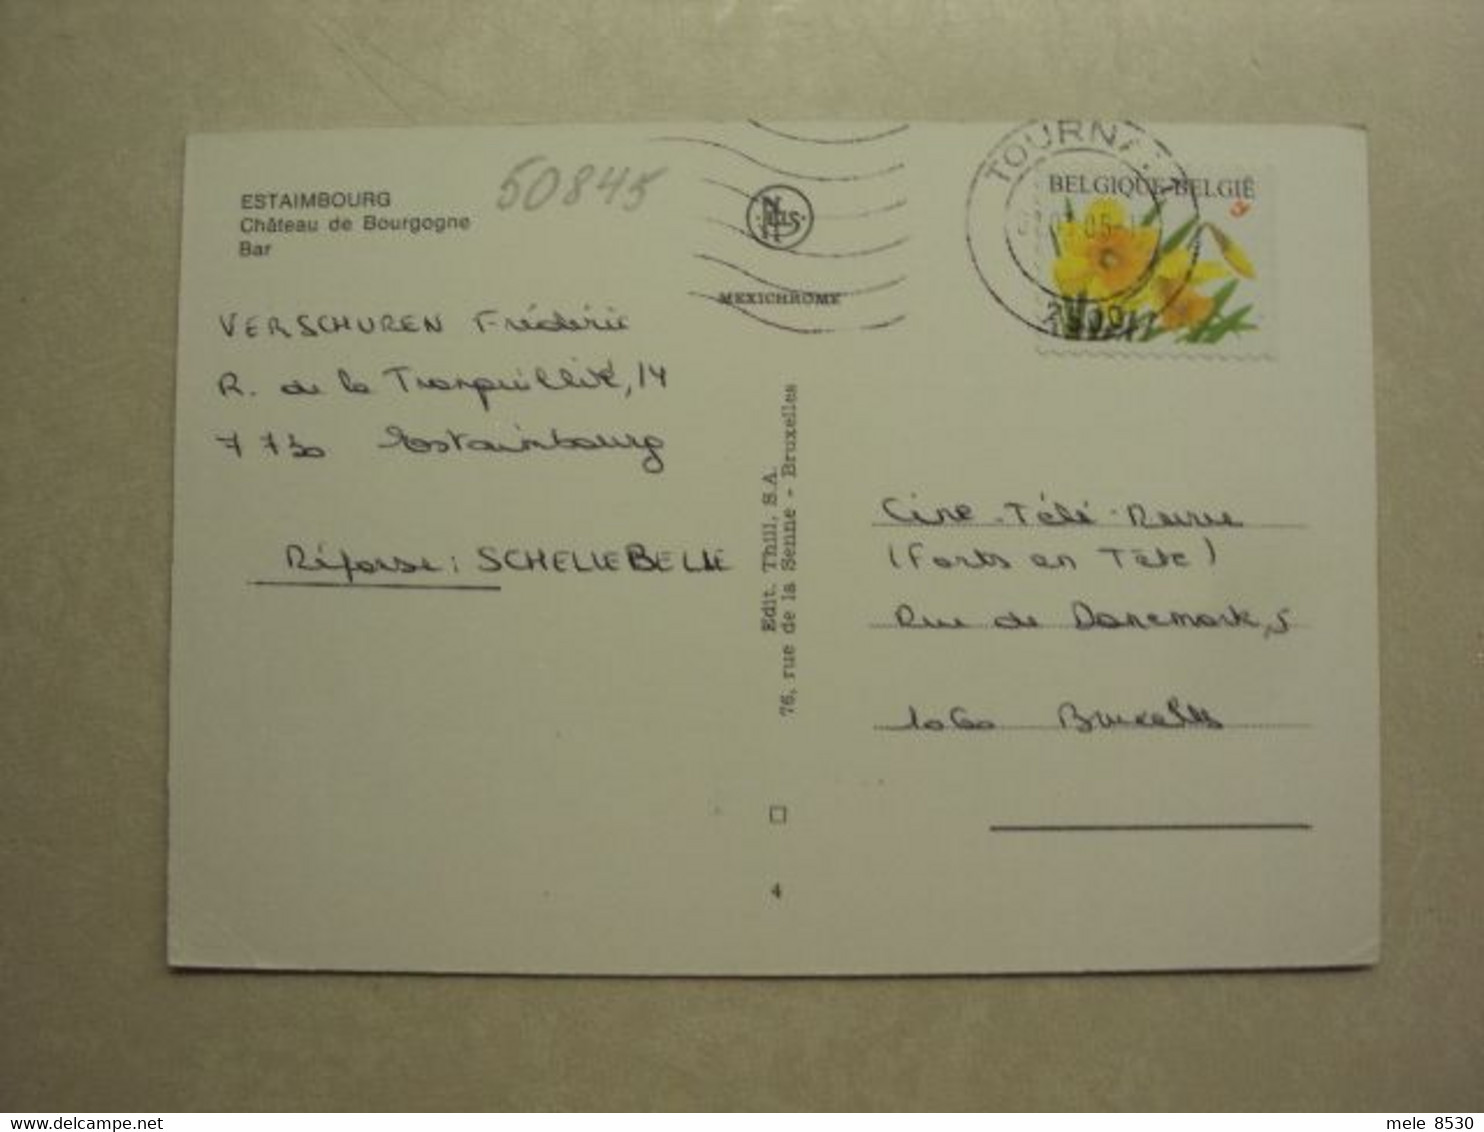 ESTAIMBOURG
Château de Bourgogne
Bar
50845
NELS
MEXICHROME
TOURNAI
BELGIQUE-BELGIË
VERSCHUREN Frédéric
R. de la Tranquillité, 14
7730 Estaimbourg
Réponse : SCHELLEBELLE
Edit. Thill, S.A.
76, rue de la Senne - Bruxelles
Ciné-Télé-Revue
(Forts en Tête)
Rue de Danemark, 5
1060 Bruxelles
4
mele 8530